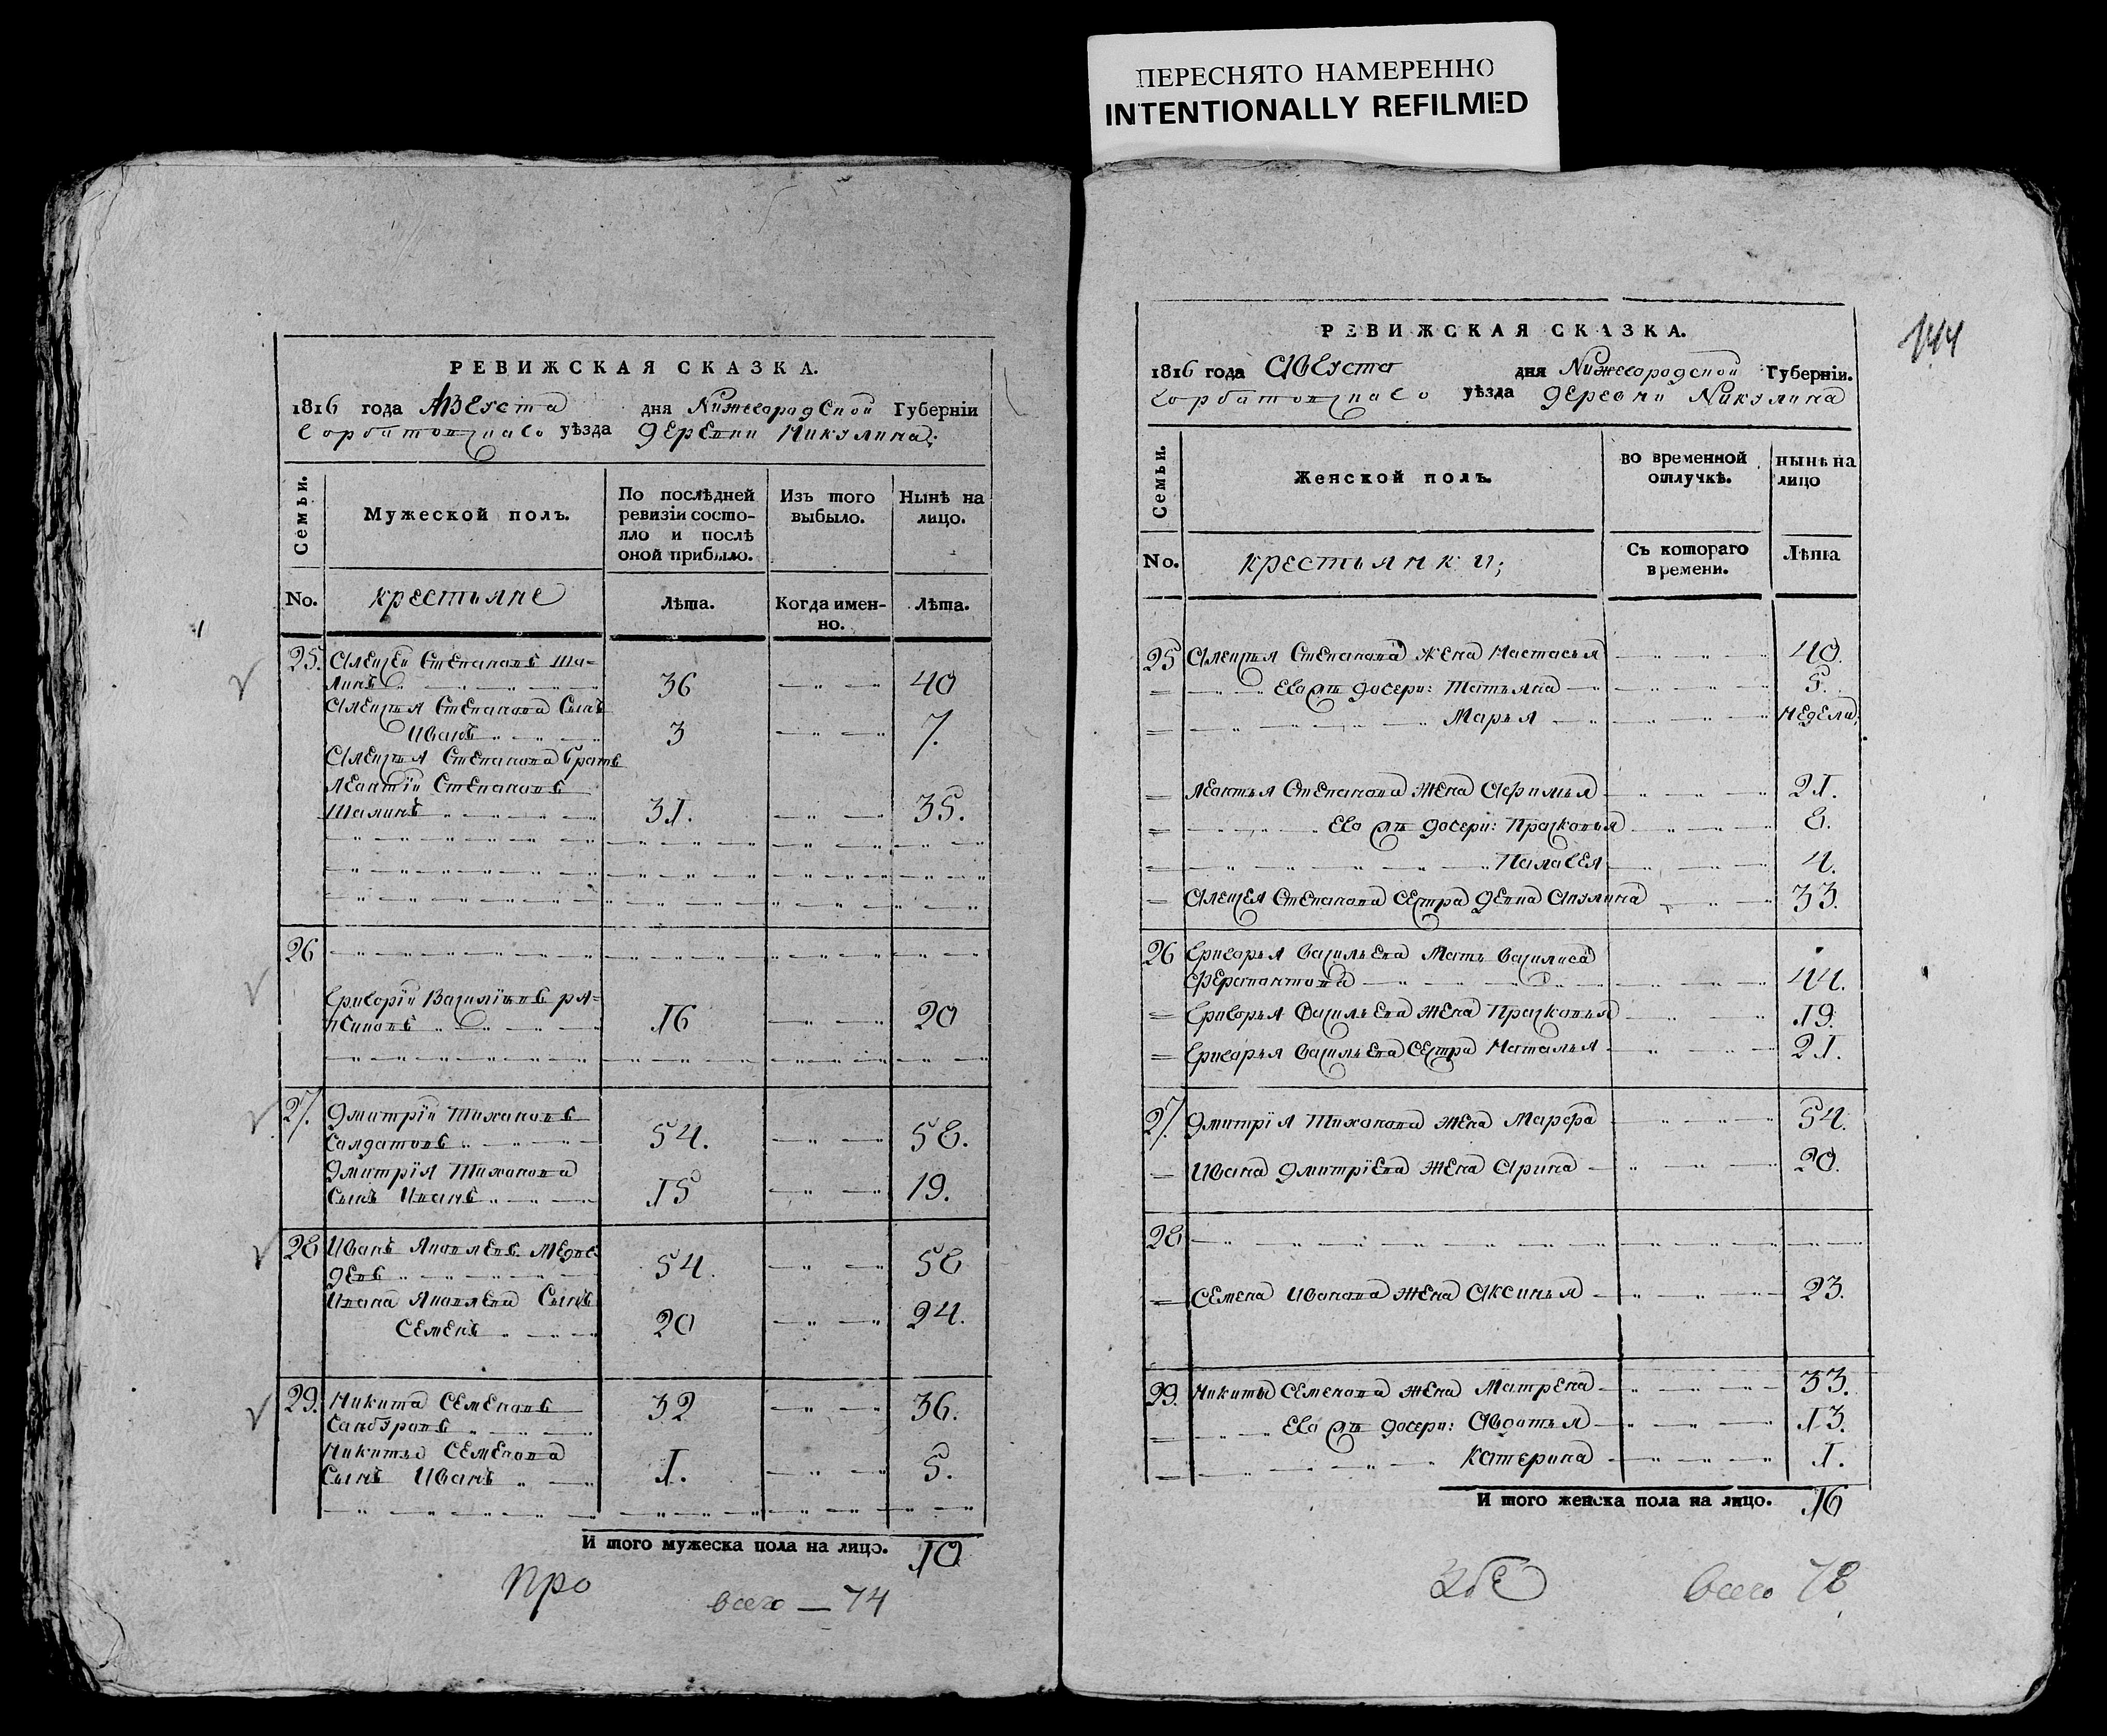 ПЕРЕСНЯТО НАМЕРЕННО
INTENTIONALLY REFILMED
РЕВИЖСКАЯ СКАЗКА.
1816 года Августа дня Нижегородской Губерніи
Горбатовскаго уѣзда деревни Никулина;
Семьи.
Мужеской полъ.
По послѣдней ревизіи состояло и послѣ оной прибыло.
Изъ того выбыло.
Нынѣ на лицо.
No.
крестьяне
Лѣта.
Когда именно.
Лѣта.
25. Алексѣй Степановъ Ша-
линъ 36 40
Алексѣя Степанова Сынъ
Иванъ 3 7.
Алексѣя Степанова братъ
Леонтій Степановъ
Шалинъ 31. 35.
26
Григорій Васильевъ
16 20
27. Дмитрій Тихановъ
Салдатовъ 54. 58.
Дмитрія Тиханова
Сынъ Иванъ 15 19.
28 Иванъ Яковлевъ Медве-
девъ 54. 58
Ивана Яковлева Сынъ
Семенъ 20 24.
29. Никита Семеновъ
Санбуровъ 32 36.
Никиты Семенова
Сынъ Иванъ 1. 5.
И того мужеска пола на лицо. 10
Про
всего — 74
144
РЕВИЖСКАЯ СКАЗКА.
1816 года Августа дня Нижегородской Губерніи.
Горбатовскаго уѣзда деревни Никулина
Семьи.
Женской полъ.
во временной отлучкѣ.
нынѣ на лицо
No.
крестьянки;
Съ котораго времени.
Лѣта
25 Алексѣя Степанова жена Настасья 40.
Ево дочери: Татьяна 5.
Марья неделя.
Леонтья Степанова жена Афимья 21.
Ево дочери: Прасковья 8.
Палагея 4.
Алексея Степанова сестра девка Акулина 33.
26 Григорья Васильева Мать Василиса
Ферапонтова 44.
Григорья Васильева жена Прасковья 19.
Григорья Васильева сестра Наталья 21.
27. Дмитрія Тиханова жена Марфа 54.
Ивана Дмитріева жена Арина 20.
28
Семена Иванова жена Аксинья 23.
29. Никиты Семенова жена Матрена 33.
Ево дочери: Авдотья 13.
Катерина 1.
И того женска пола на лицо. 16
всего 78